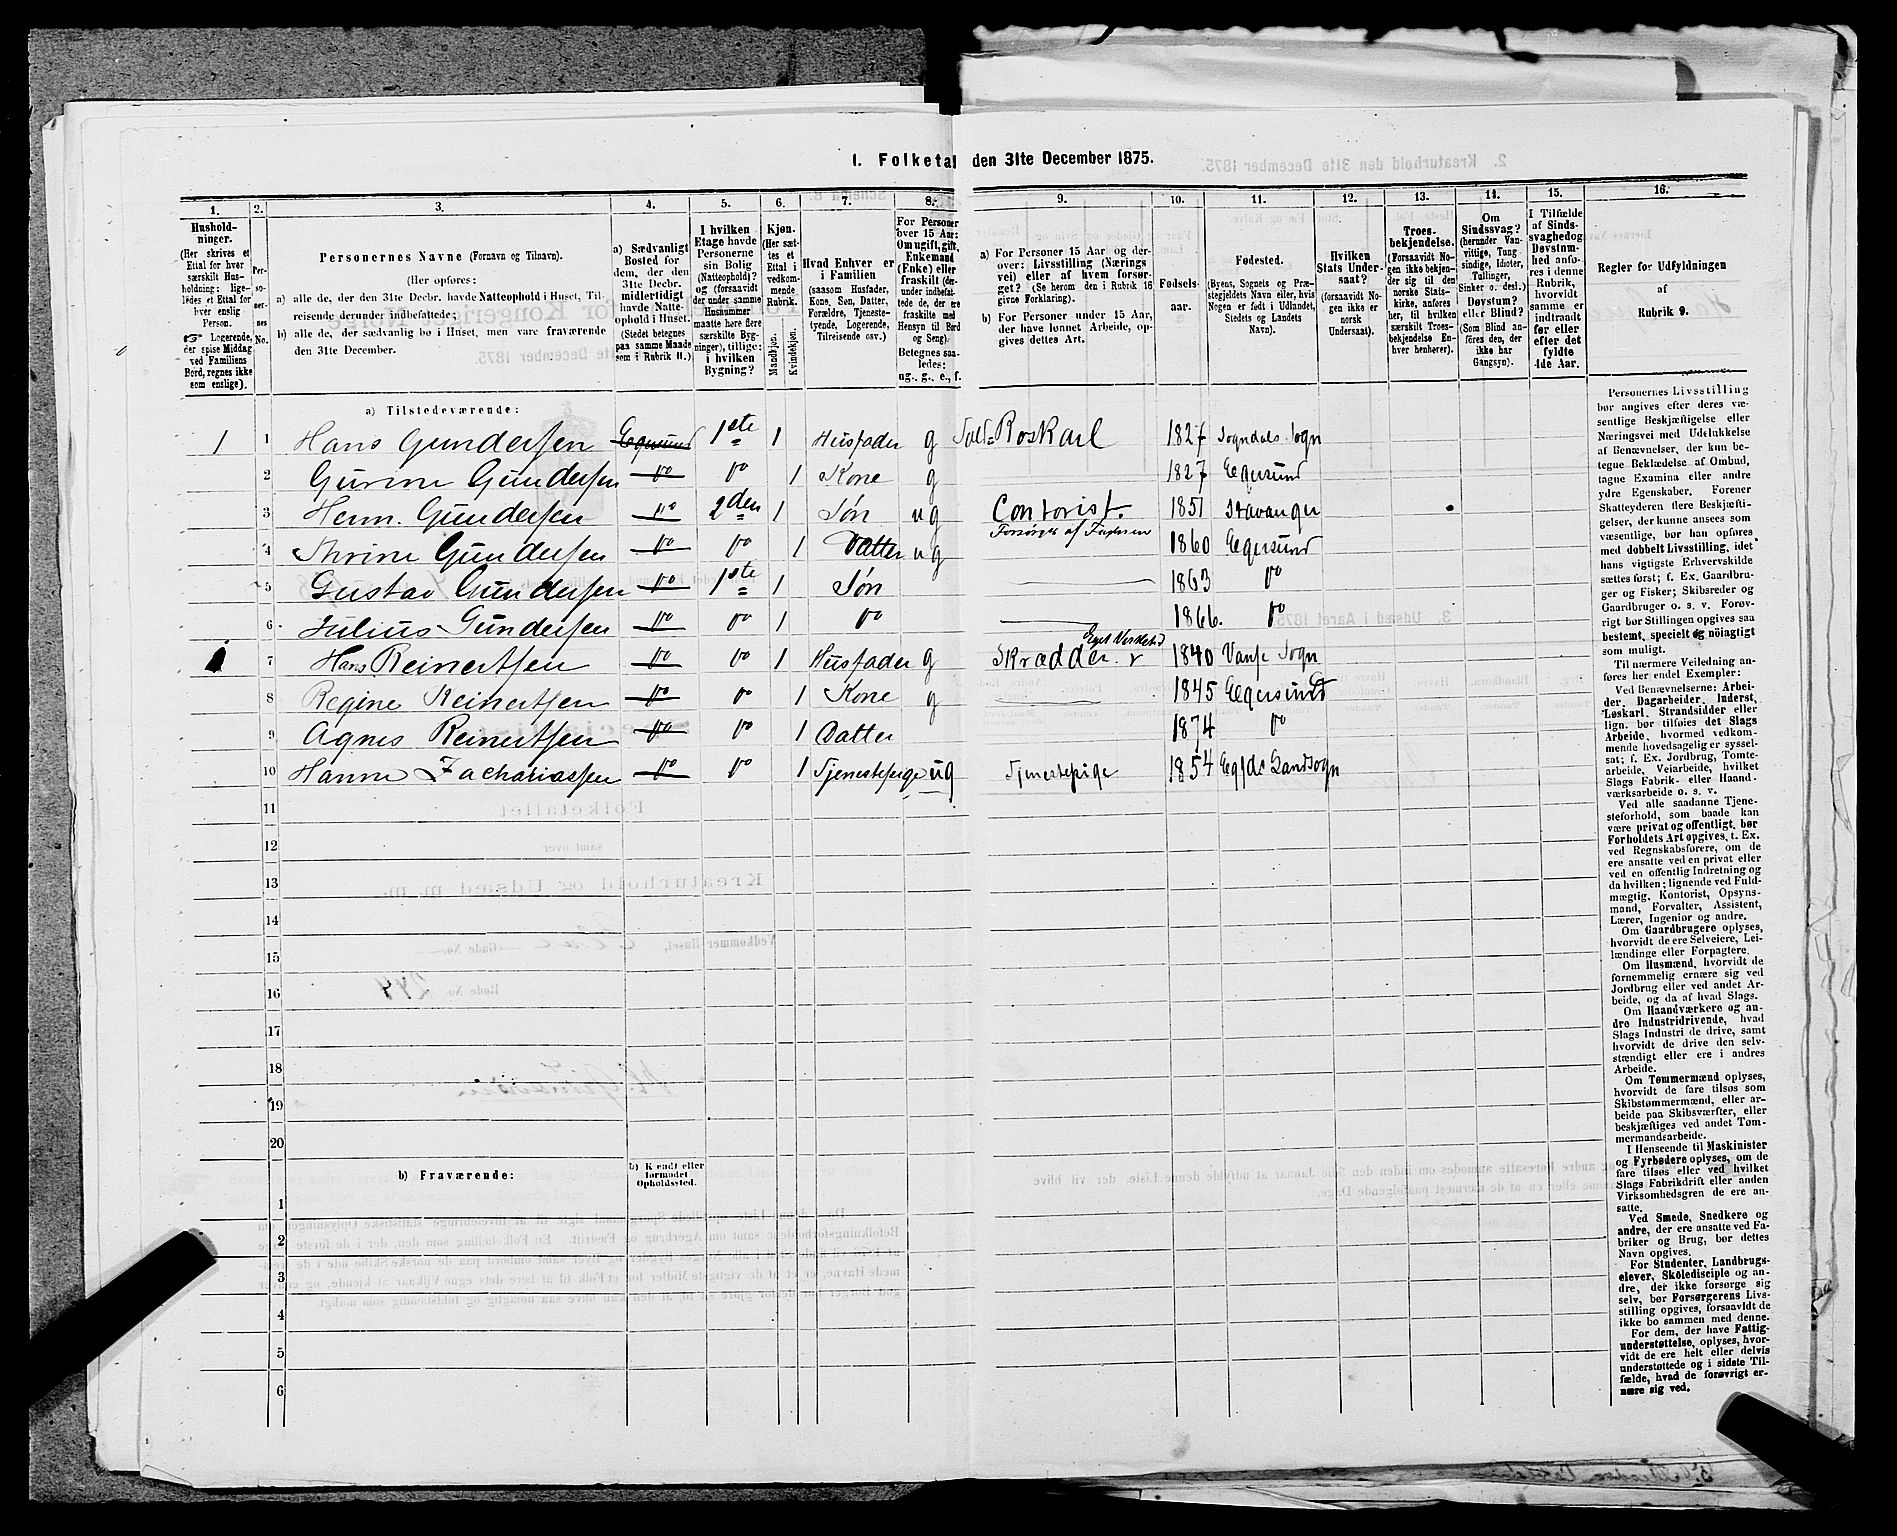 1. Folketal den 31te December 1875.
1. 2. 3. 4. 5. 6. 7. 8. 9. 10. 11. 12. 13. 14. 15. 16.
Hushold-
ninger.
(Her skrives et
Ettal for hver
særskilt Hus-
holdning; lige-
ledes et Ettal for
hver enslig
Person.
☞ Logerende,
der spise Middag
ved Familiens
Bord, regnes ikke
som enslige).
Per-
so-
ner-
nes
No.
Personernes Navne (Fornavn og Tilnavn).
(Her opføres:
a) alle de, der den 31te Decbr. havde Natteophold i Huset, Til-
reisende derunder indbefattede;
b) alle de, der sædvanlig bo i Huset, men vare fraværende
den 31te December.
a) Sædvanligt
Bosted for
dem, der den
31te Decbr.
midlertidigt
havde Natte-
ophold i Huset.
(Stedet betegnes
paa samme Maade
som i Rubrik 11.)
I hvilken
Etage havde
Personerne
sin Bolig
(Natteophold)?
og (forsaavidt
der under samme
Husnummer
maatte høre flere
særskilte Byg-
ninger), tillige:
i hvilken
Bygning?
Kjøn.
(Her sæt-
tes et
Ettal i
vedkom-
mende
Rubrik.
Mandkjøn.
Kvindekjøn.
Hvad Enhver er
i Familien
(saasom Husfader,
Kone, Søn, Datter,
Forældre, Tjeneste-
tyende, Logerende,
Tilreisende osv.)
For Personer
over 15 Aar:
Om ugift, gift,
Enkemand
(Enke) eller
fraskilt (der-
under indbefat-
tede de, der ere
fraskilte med
Hensyn til Bord
og Seng).
Betegnes saa-
ledes:
ug., g., e., f.
a) For Personer 15 Aar og der-
over: Livsstilling (Nærings
vei) eller af hvem forsør-
get? (Se herom den i Rubrik 16
givne Forklaring).
b) For Personer under 15 Aar,
der have lønnet Arbeide, op-
gives dettes Art.
Fødsels-
aar.
Fødested.
(Byens, Sognets og Præ-
stegjeldets Navn eller, hvis
Nogen er født i Udlandet,
Stedets og Landets
Navn).
Hvilken
Stats Under-
saat?
(forsaavidt No-
gen ikke er
norsk
Undersaat).
Troes-
bekjendelse.
(Forsaavidt No-
gen ikke bekjen-
der sig til den
norske Stats-
kirke, anføres
her, til hvilken
særskilt Troes-
bekjendelse En-
hver henhører).
Om
Sindssvag?
(herunder Van-
vittige, Tung
sindige, Idioter,
Tullinger,
Sinker o. desl.)
Døvstum?
eller Blind?
(Som Blind an-
føres den, der
ikke har
Gangsyn).
I Tilfælde
af Sinds-
svaghed og
Døvstum-
hed anfø-
res i denne
Rubrik,
hvorvidt
samme er
indtraadt
før eller
efter det
fyldte
4de Aar.
Regler for Udfyldningen
af
Rubrik 9.
a) Tilstedeværende:
1 1 Hans Gundersen Egersund 1ste 1 Husfader g Told=Roskarl 1827 Sogndals Sogn
2 Gurine Gundersen do do 1 Kone g 1827 Egersund
3 Herm. Gundersen do 2den 1 Søn ug Contorist. 1851 Stavanger
4 Thrine Gundersen do do 1 Datter ug Forsørges af Faderen 1860 Egersund
5 Gustav Gundersen do 1ste 1 Søn 1863 do
6 Julius Gundersen do do 1 do 1866. do
7 Hans Reinertsen do do 1 Husfader g Skrædder 1840 Vanse Sogn
8 Regine Reinertsen do do 1 Kone g 1845 Egersund
9 Agnes Reinertsen do do 1 Datter 1874 do
10 Hanne Zachariassen do do 1 Tjenestepige ug Tjenestepige 1854 Landsogn
11
12
13
14
15
16
17
18
19
20
b) Fraværende:
b) Kjendt eller
formodet
Opholdssted.
1
2
3
4
5
6
Personernes Livsstilling
bør angives efter deres væ-
sentlige Beskjæftigelse eller
Næringsvei med Udelukkelse
af Benævnelser, der kun be-
tegne Beklædelse af Ombud,
tagne Examina eller andre
ydre Egenskaber. Forener
Skatteyderen flere Beskjæfti-
gelser, der kunne ansees som
væsentlige, bør han opføres
med dobbelt Livsstilling, idet
hans vigtigste Erhvervskilde
sættes først; f. Ex. Gaardbru-
ger og Fisker; Skibsreder og
Gaardbruger o. s. v. Forøv-
rigt bør Stillingen opgives saa
bestemt, specielt og nöiagtigt
som muligt.
Til nærmere Veiledning an-
føres her endel Exempler:
Ved Benævnelserne: Arbei-
der, Dagarbeider, Inderst,
Løskarl, Strandsidder eller
lign. bør tilføies det Slags
Arbeide, hvormed vedkom-
mende hovedsagelig er syssel-
sat; f. Ex. Jordbrug, Tomte
arbeide, Veiarbeide, hvilket
Slags Fabrik- eller Haand-
værksarbeide o. s. v.
Ved alle saadanne Tjene-
steforhold, som baade kan
være privat og offentligt, bør
Forholdets Art opgives, t. Ex.
ved Regnskabsførere, om de
ere ansatte ved en privat eller
ved en offentlig Indretning og
da hvilken; lignende ved Fuld-
mægtig, Kontorist, Opsyns-
mand, Forvalter, Assistent,
Lærer, Ingeniør og andre.
Om Gaardbrugere oplyses,
hvorvidt de ere Selveiere, Lei-
lændinge eller Forpagtere.
Om Husmænd, hvorvidt de
fornemmelig ernære sig ved
Jordbrug eller ved andet Ar-
beide, og da af hvad Slags.
Om Haandværkere og an-
dre Industridrivende, hvad
Slags Industri de drive, samt
hvorvidt de drive den selv-
stændigt eller ere i andres
Arbeide.
Om Tømmermænd oplyses,
hvorvidt de fare tilsøs som
Skibstømmermænd, eller ar-
beide paa Skibsværfter, eller
beskjæftiges ved andet Tøm-
mermandsarbeide.
I Henseende til Maskinister
og Fyrbødere oplyses, om de
fare tilsøs eller ved hvilket
Slags Fabrikdrift eller anden
Virksomhedsgren de ere an-
satte.
Ved Smede, Snedkere og
andre, der ere ansatte ved Fa-
briker og Brug, bør dettes
Navn opgives.
For Studenter, Landbrugs-
elever, Skoledisciple og an-
dre, der ikke forsørge sig
selv, bør Forsørgerens Livs-
stilling opgives, forsaavldt de
ikke bo sammen med denne.
For dem, der have Fattig-
understøttelse, oplyses, hvor-
vidt de ere helt eller delvis
understøttede og i sidste Til-
fælde, hvad de forøvrigt er-
nære sig ved.